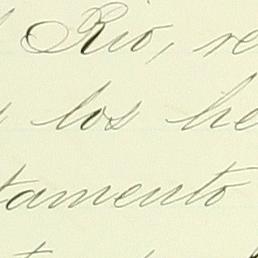 Rio, re
los he
tamento